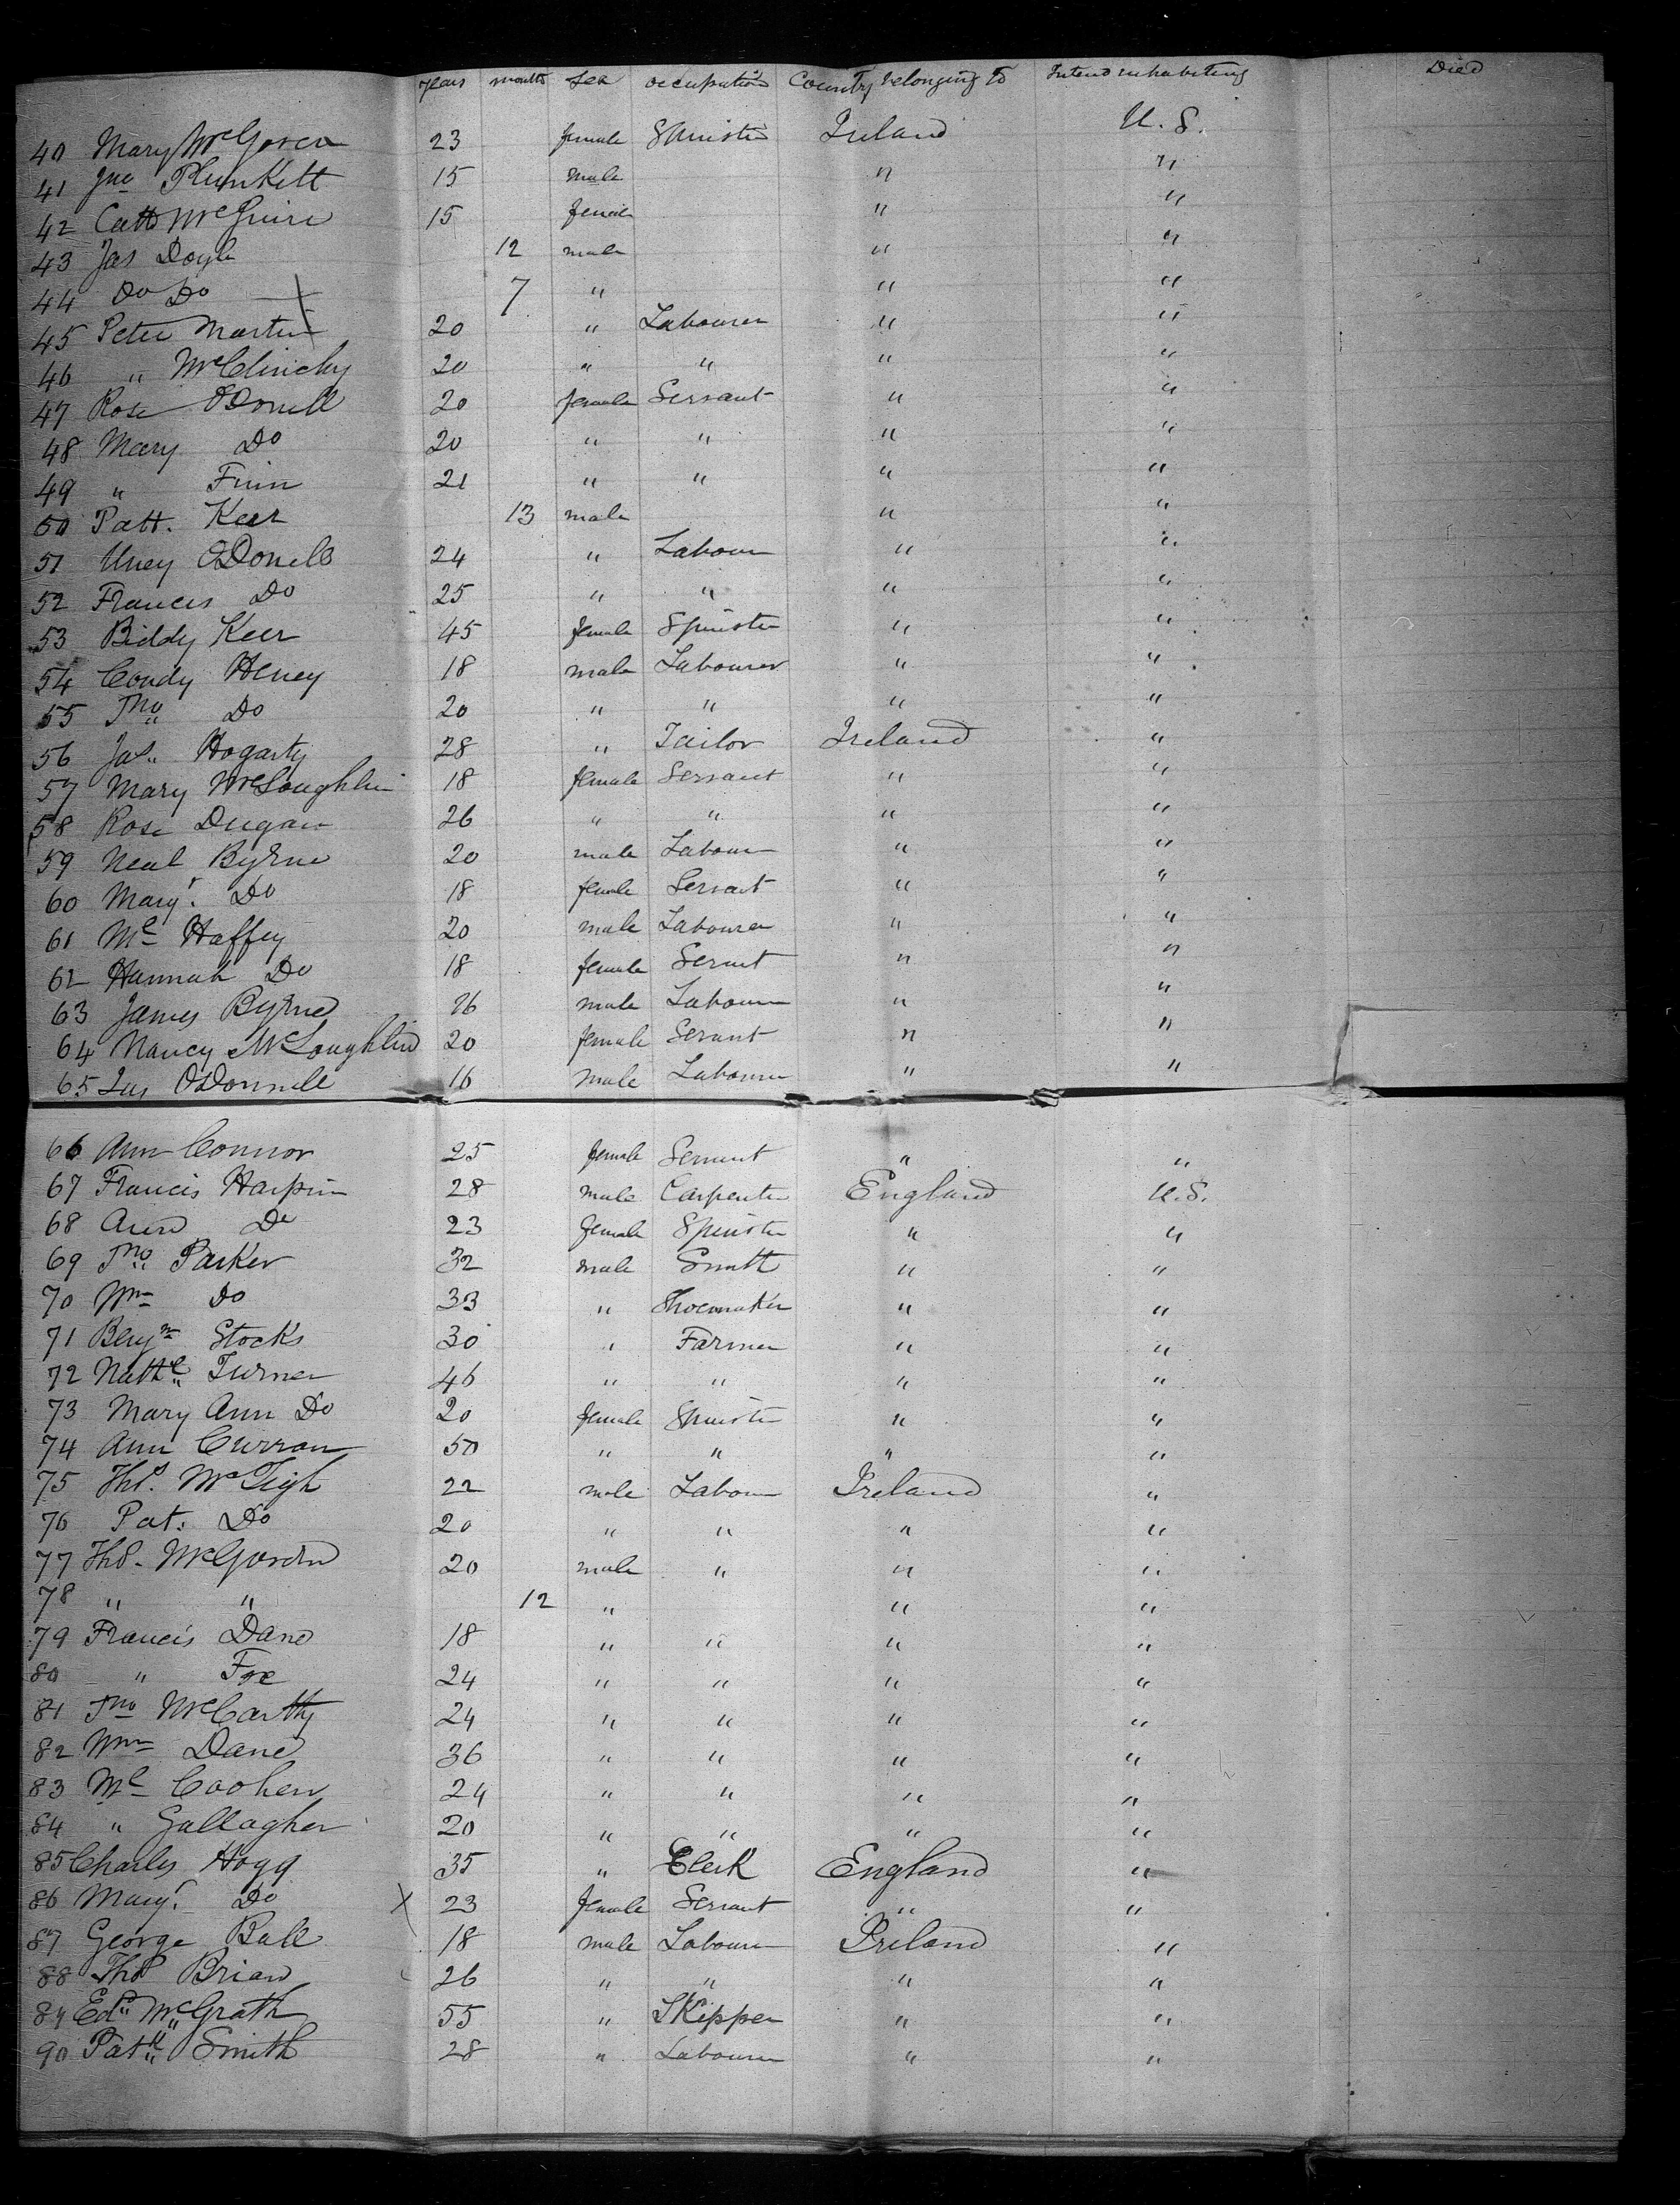 years months Sex occupation Country belonging to Intend inhabiting Died
40 Mary McGovern 23 female Spinster Ireland U.S.
41 Jno Plunkett 15 male " "
42 Cath McGuire 15 female " "
43 Jas Doyle 12 male " "
44 Do Do 7 " " "
45 Peter Martin 20 " Labourer " "
46 " McClinchy 20 " " " "
47 Rose ODonell 20 female Servant " "
48 Mary Do 20 " " " "
49 " Finn 21 " " " "
50 Patt. Keer 13 male " "
51 Uney ODonell 24 " Labourer " "
52 Francis Do 25 " " " "
53 Biddy Keer 45 female Spinster " "
54 Condy Heney 18 male Labourer " "
55 Jno Do 20 " " " "
56 Jas. Hogarty 28 " Tailor Ireland "
57 Mary McLoughlin 18 female Servant " "
58 Rose Dugan 26 " " " "
59 Neal Byrne 20 male Labourer " "
60 Margt. Do 18 female Servant " "
61 Ml Haffey 20 male Labourer " "
62 Hannah Do 18 female Servant " "
63 James Byrne 16 male Labourer " "
64 Nancy McLoughlin 20 female Servant " "
65 Jas ODonnell 16 male Labourer " "
66 Ann Connor 25 female Servant " "
67 Francis Harpin 28 male Carpenter England U.S.
68 Ann Do 23 female Spinster " "
69 Jno Parker 32 male Smith " "
70 Wm Do 33 " Shoemaker " "
71 Benjm Stocks 30 " Farmer " "
72 Nathl Turner 46 " " " "
73 Mary Ann Do 20 female Spinster " "
74 Ann Curran 50 " " " "
75 Ths. McTigh 22 male Labourer Ireland "
76 Pat. Do 20 " " " "
77 Ths. McGovern 20 male " " "
78 " " 12 " " "
79 Francis Dane 18 " " " "
80 " Foe 24 " " " "
81 Jno McCarthy 24 " " " "
82 Wm Dane 36 " " " "
83 Ml Coohen 24 " " " "
84 " Gallagher 20 " " " "
85 Charles Hogg 35 " Clerk England "
86 Margt. Do X 23 female Servant " "
87 George Ball 18 male Labourer Ireland "
88 Ths Brian 26 " " " "
89 Edd McGrath 55 " Skipper " "
90 Patk Smith 28 " Labourer " "